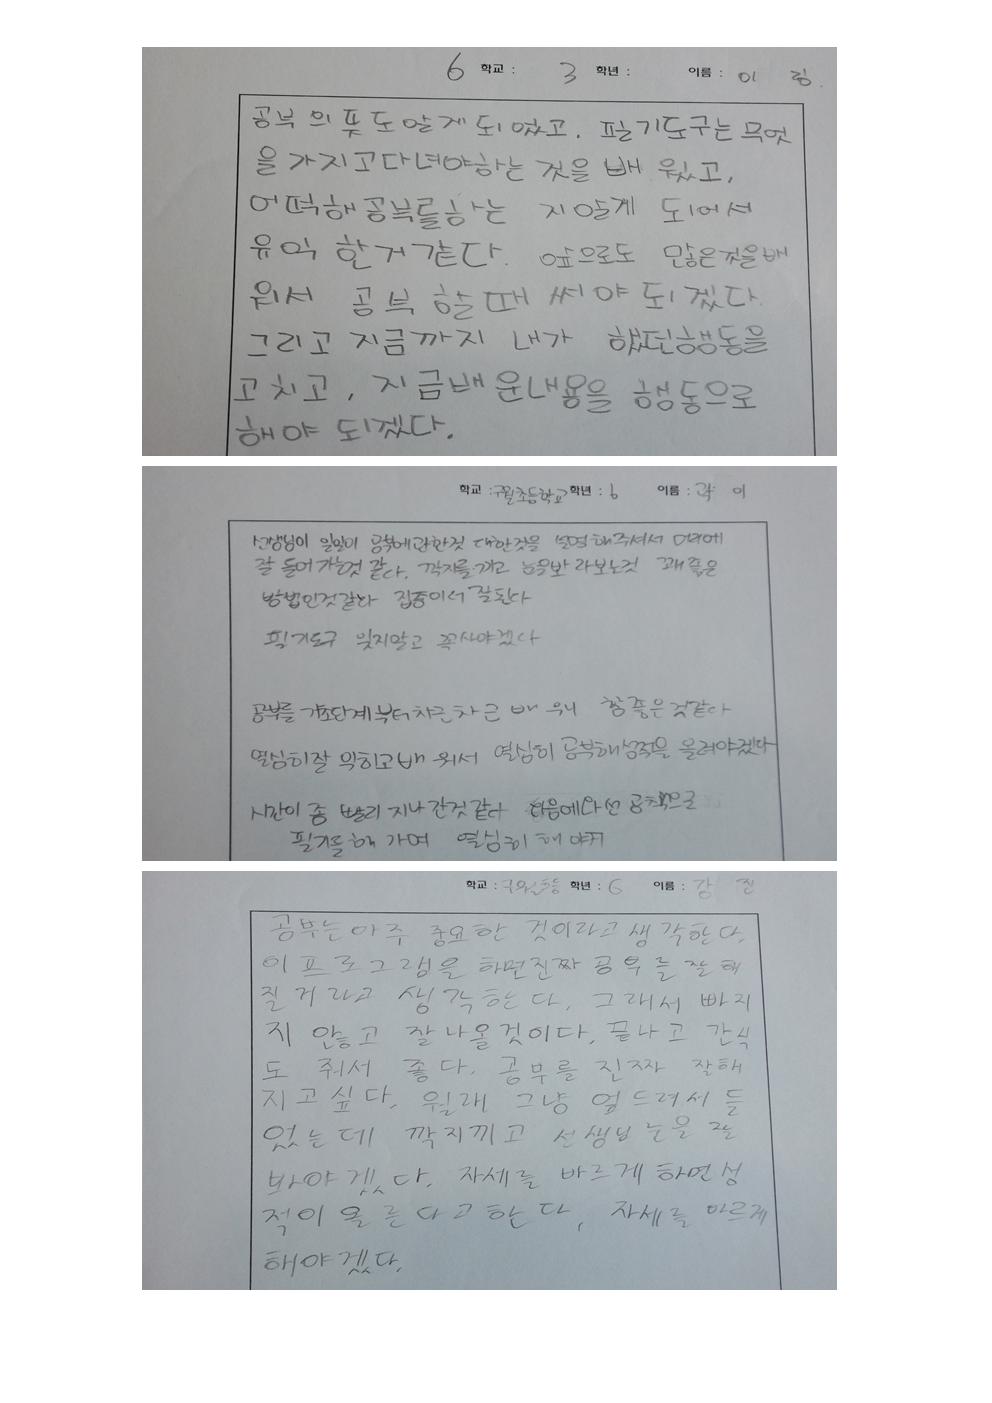 6 학교 : 3 학년 : 이름 : 이 림
공부의 푯도 알게 되었고. 필기도구는 무엇
을 가지고다녀야하는 것을 배웠고,
어떡해 공부를하는 지알게 되어서
유익 한거같다. 앞으로도 많은것을배
워서 공부 할때 써야 되겠다.
그리고 지금까지 내가 했던행동을
고치고, 지금배운내용을 행동으로
해야 되겠다.
학교 : 구월초등학교 학년 : 6 이름 : 곽 이
선생님이 일일이 공부에관한것 대한것을 설명해주셔서 머리에
잘 들어가는것 같다. 깍지를끼고 눈을바라보는것 꽤 좋은
방법인것같다 집중이서 잘된다
필기도구 잊지말고 꼭사야겠다
공부를 기초단계부터차근차근 배우니 참 좋은것같다
열심히잘 익히고배워서 열심히 공부해성적을 올려야겠다
시간이 좀 빨리 지나간것같다 다음에와선 공책으로
필기를해 가며 열심히 해야지
학교 : 구월초등 학년 : 6 이름 : 강 진
공부는아주 중요한 것이라고 생각한다.
이 프로그램을 하면진짜 공부를 잘해
질거라고 생각한다. 그래서 빠지
지 않고 잘나올것이다. 끝나고 간식
도 줘서 좋다. 공부를 진짜 잘해
지고싶다. 원래 그냥 엎드려서 들
었는데 깍지끼고 선생님 눈을 잘
봐야겠다. 자세를 바르게하면성
적이 올른다고한다, 자세를 바르게
해야겠다.